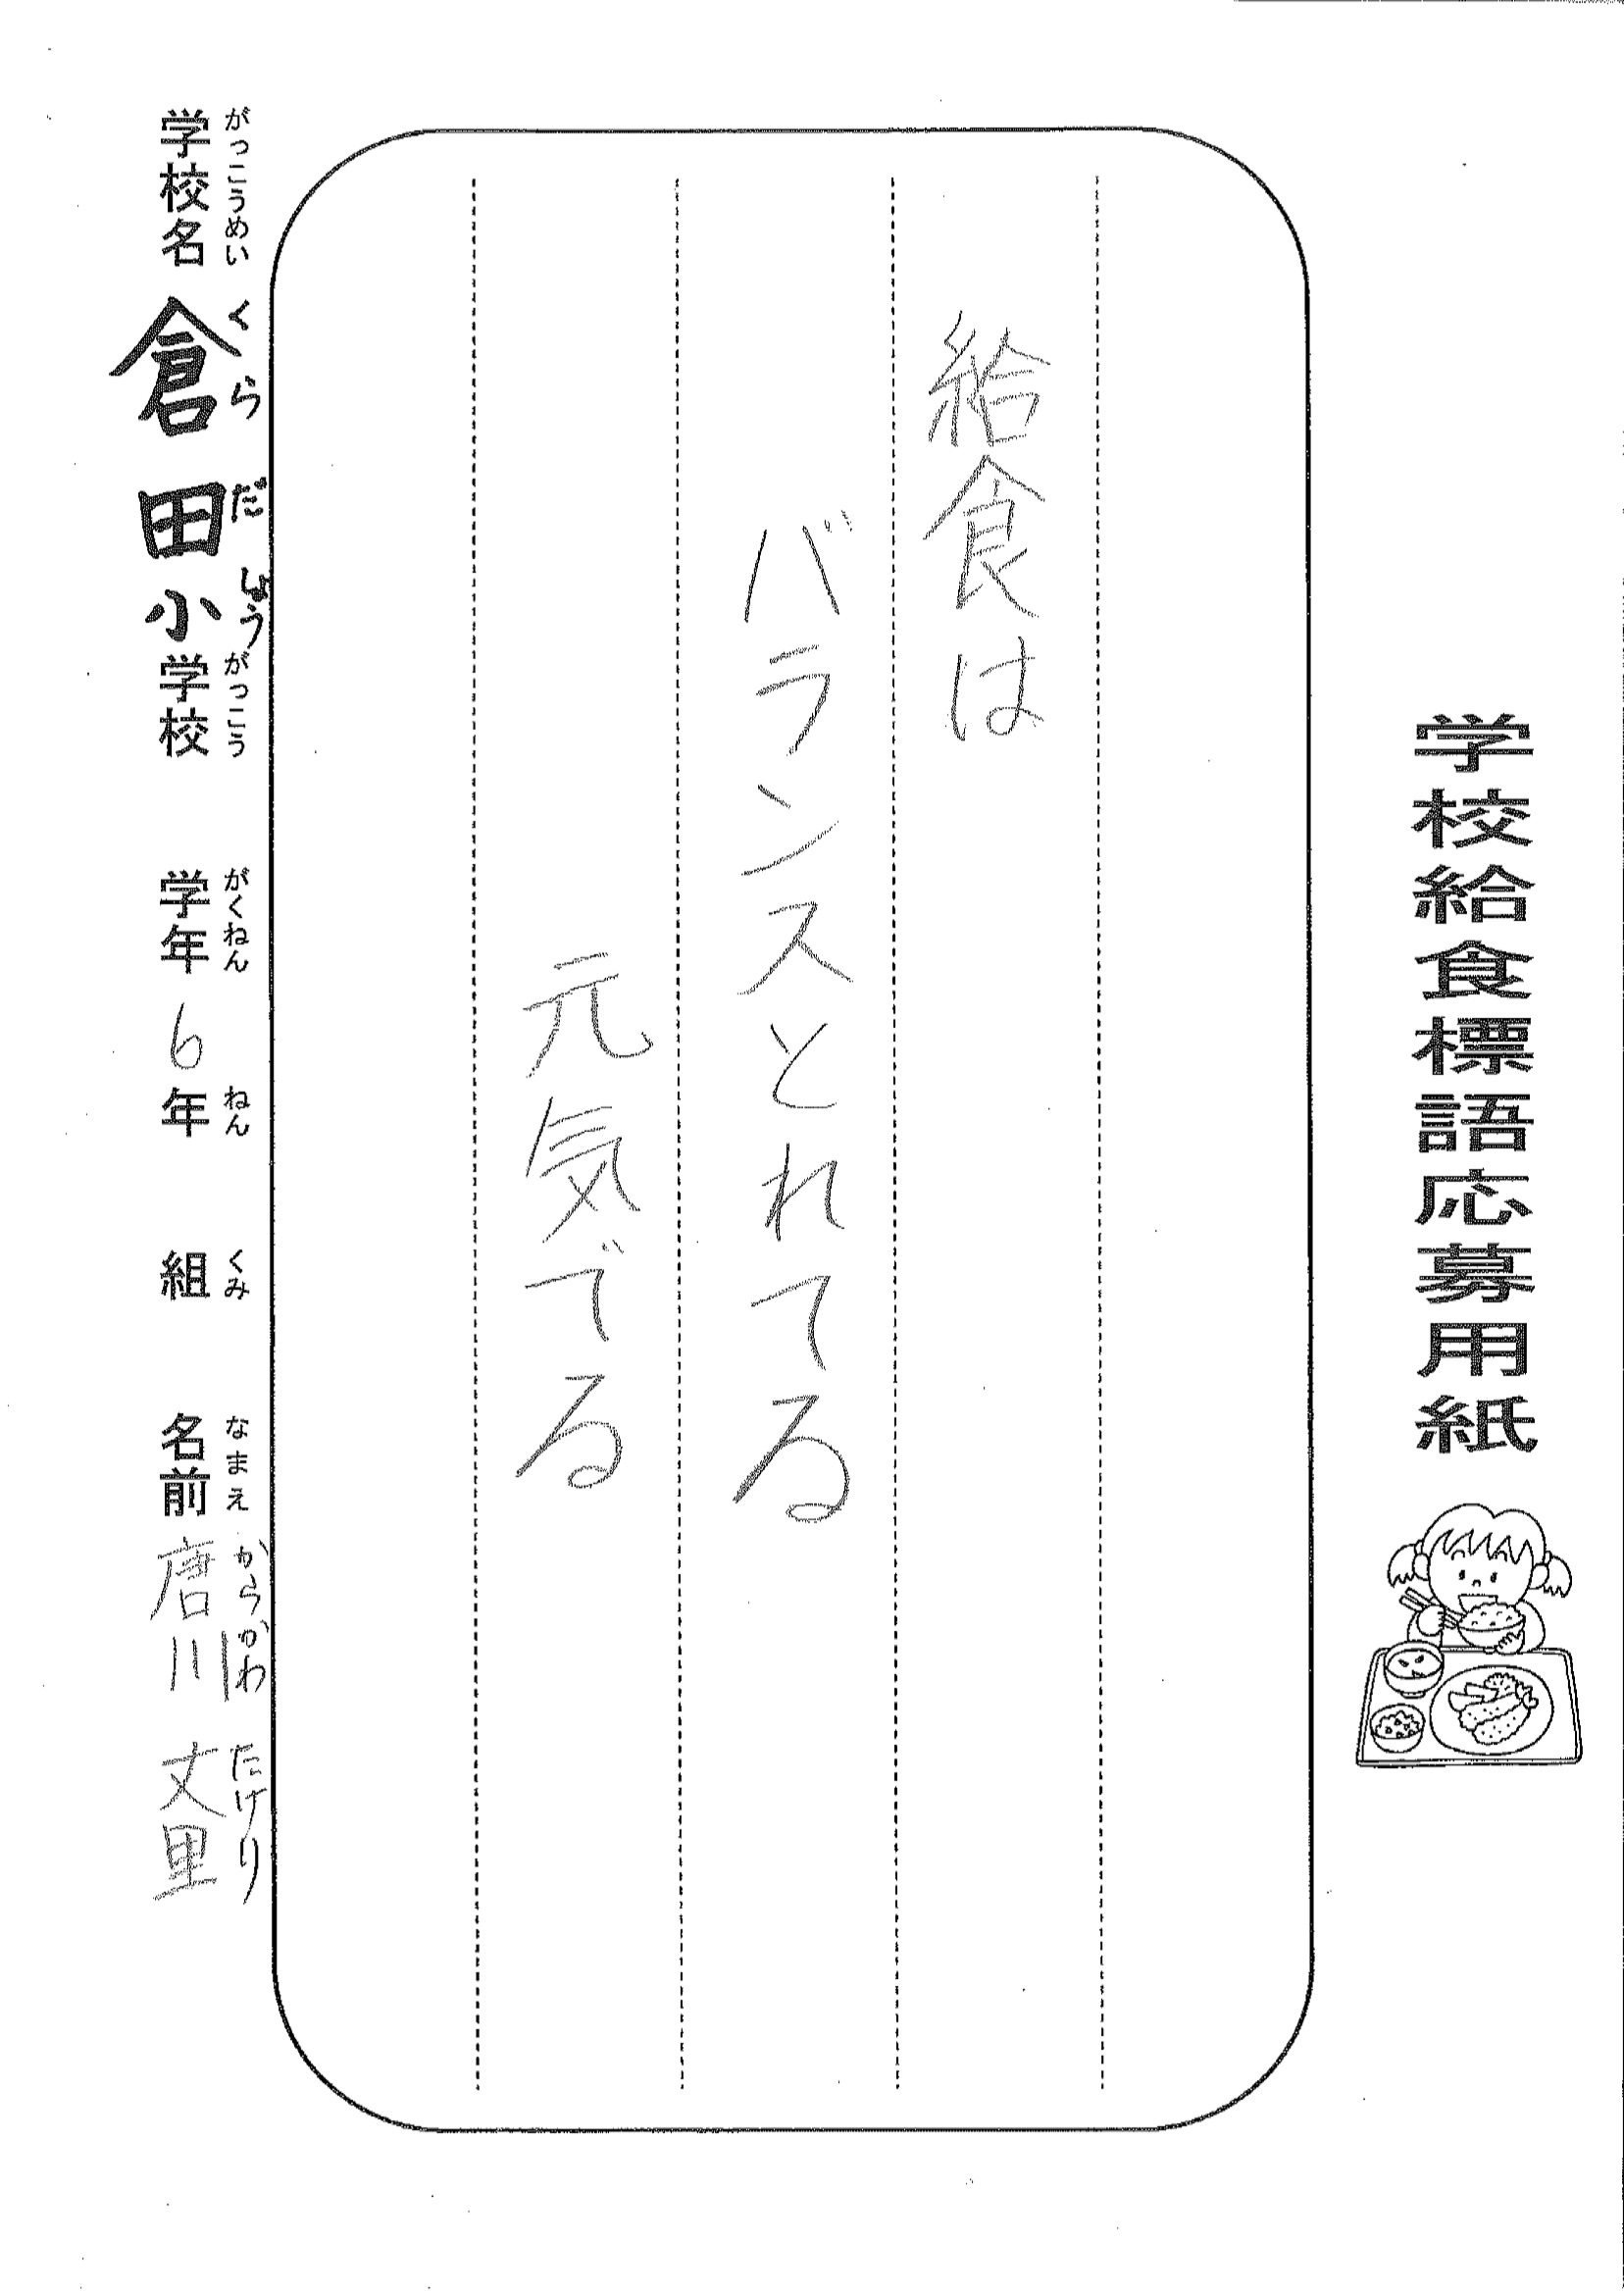 学校給食標語応募用紙
給食は
バランスとれてる
元気でる
がっこうめい くらだしょうがっこう がくねん ねん くみ なまえ からかわ たけり
学校名 倉田小学校 学年 6年 組 名前 唐川 丈里